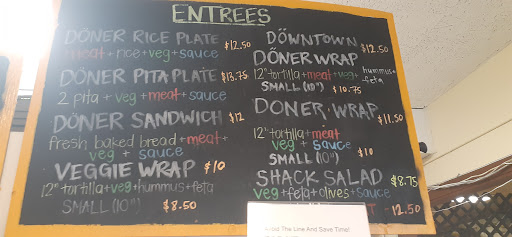 ENTREES
DÖNER RICE PLATE $12.50
meat+rice+veg+sauce
DÖNER PITA PLATE $13.75
2 pita + veg+meat+sauce
DÖNER SANDWICH $12
fresh baked bread+meat+
veg + sauce
VEGGIE WRAP $10
12" tortilla+veg+hummus+feta
SMALL (10") $8.50
DÖWNTOWN $12.50
DÖNER WRAP
12" tortilla+meat+veg+ hummus+
feta
SMALL (10") $10.75
DONER WRAP $11.50
12" tortilla+meat
veg + sauce
SMALL (10") $10
SHACK SALAD $8.75
veg+feta+olives+sauce
12.50
The Line And Save Time!